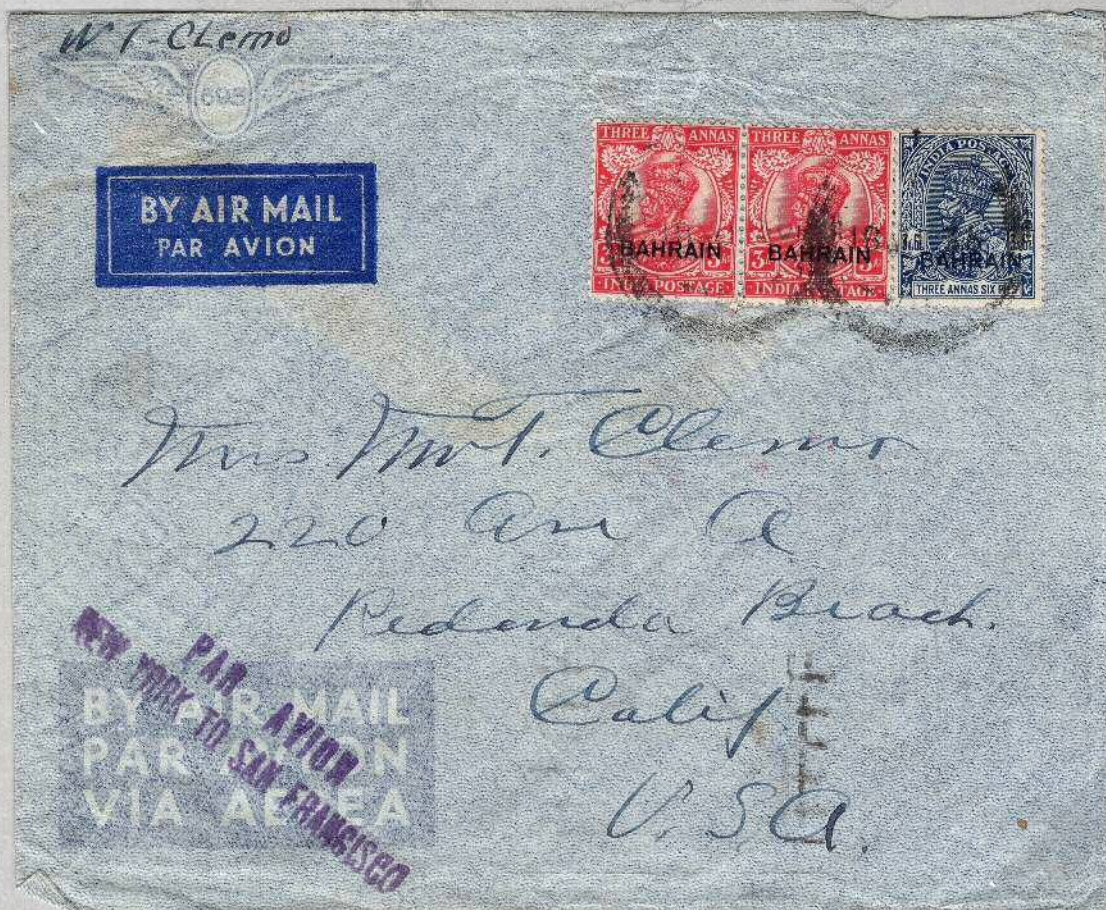 W T-Clemo
BY AIR MAIL
PAR AVION
THREE ANNAS
BAHRAIN
3 3
INDIA POSTAGE
THREE ANNAS
BAHRAIN
3 3
INDIA POSTAGE
INDIA POSTAGE
BAHRAIN
THREE ANNAS SIX PIES
Mrs Wm T. Clemo
220 Ave A
Redondo Beach.
Calif
U.S.A.
PAR AVION
NEW YORK TO SAN FRANCISCO
BY AIR MAIL
PAR AVION
VIA AEREA